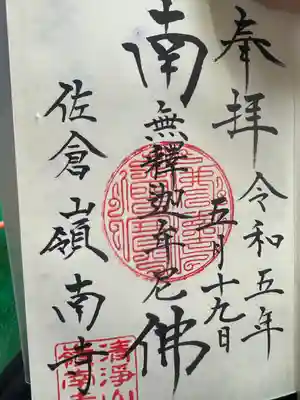 奉拝
令和五年
五月十九日
南無釋迦牟尼佛
佐倉山嶺南寺
清浄山
嶺南寺